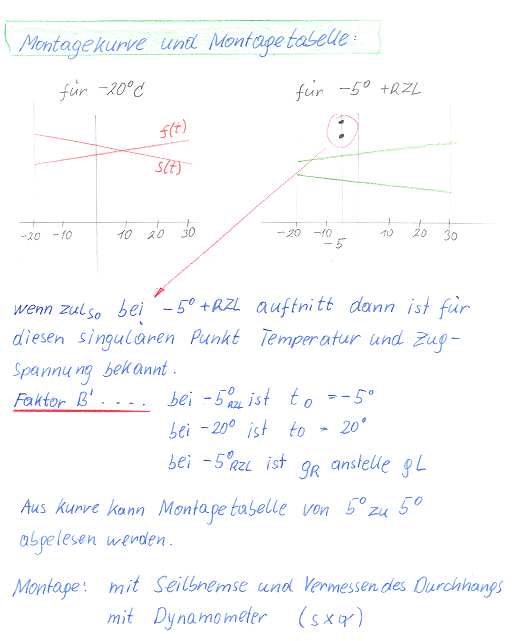 Montagekurve und Montagetabelle:
für -20°C
für -5° +RZL
f(t)
s(t)
-20 -10 10 20 30
-20 -10 10 20 30
-5
wenn zul so bei -5° +RZL auftritt dann ist für
diesen singulären Punkt Temperatur und Zug-
spannung bekannt.
Faktor B' .... bei -5° RZL ist to = -5°
bei -20° ist to = 20°
bei -5° RZL ist gR anstelle gL
Aus Kurve kann Montagetabelle von 5° zu 5°
abgelesen werden.
Montage: mit Seilbremse und Vermessen des Durchhangs
mit Dynamometer (s x q)